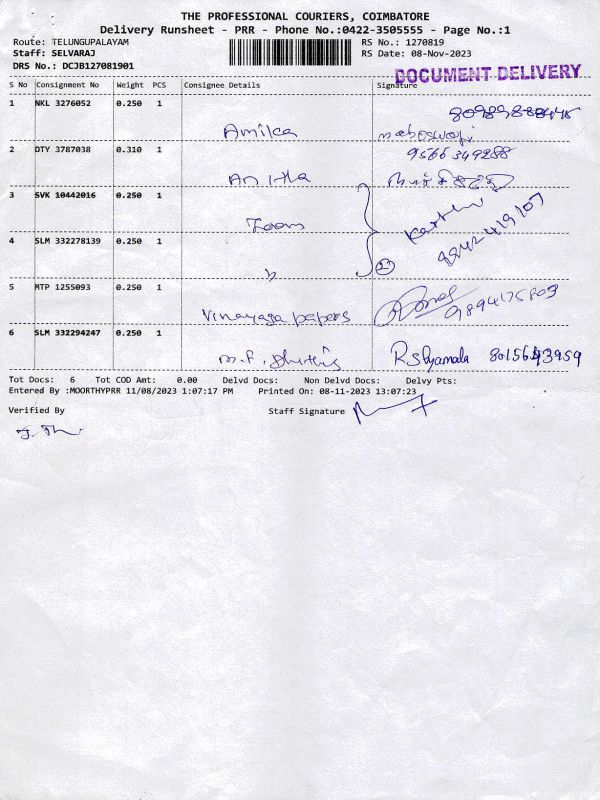 THE PROFESSIONAL COURIERS, COIMBATORE
Delivery Runsheet - PRR - Phone No.:0422-3505555 - Page No.:1
Route: TELUNGUPALAYAM RS No.: 1270819
Staff: SELVARAJ RS Date: 08-Nov-2023
DRS No.: DCJB127081901
DOCUMENT DELIVERY
S No Consignment No Weight PCS Consignee Details Signature
1 NKL 3276052 0.250 1
Amilca
2 DTY 3787038 0.310 1 9566349288
Anitha
3 SVK 10442016 0.250 1
Zoom Karthi
4 SLM 332278139 0.250 1 9942419107
"
5 MTP 1255093 0.250 1
Vinayaga papers 9894175803
6 SLM 332294247 0.250 1
RShyamala 8015643959
Tot Docs: 6 Tot COD Amt: 0.00 Delvd Docs: Non Delvd Docs: Delvy Pts:
Entered By :MOORTHYPRR 11/08/2023 1:07:17 PM Printed On: 08-11-2023 13:07:23
Verified By Staff Signature